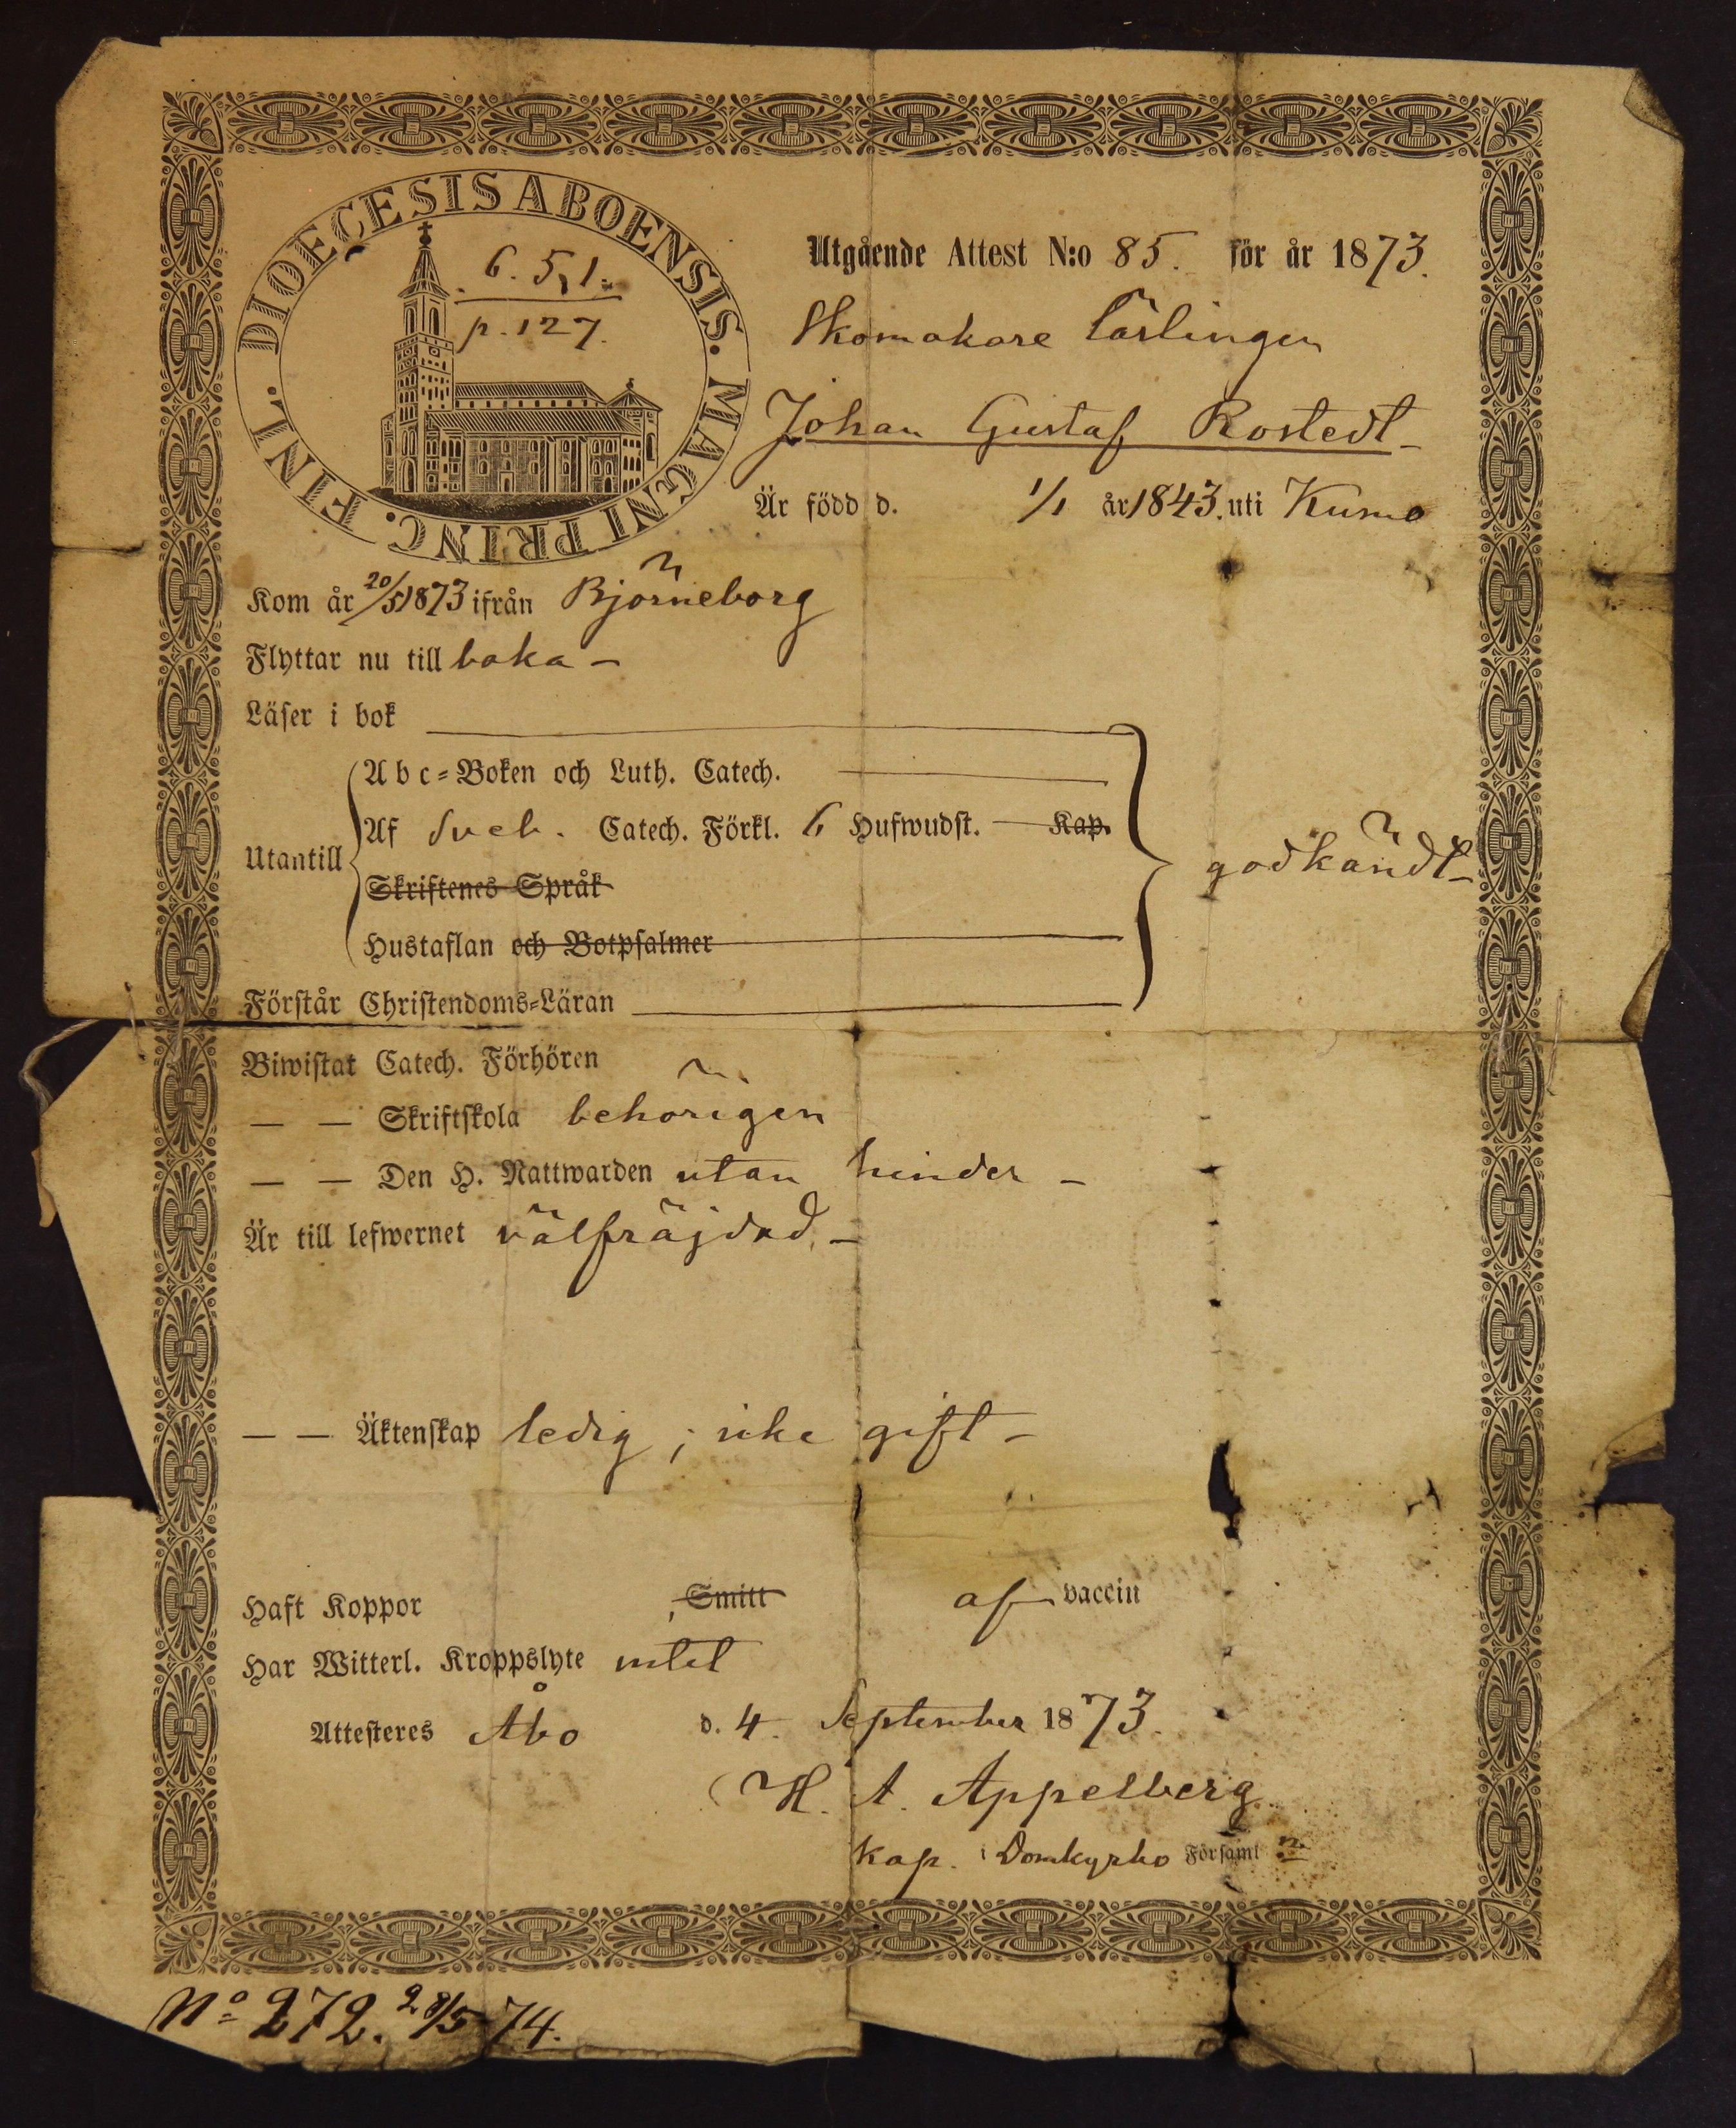 DIOECESIS ABOENSIS. MAGNI PRINC. FINL.
6. 5, 1.
p. 127.
Utgående Attest N:o 85. för år 1873.
Skomakare Lärlingen
Johan Gustaf Rostedt
Är född d. 1/1 år 1843. uti Kumo
Kom år 20/5 1873 ifrån Björneborg
Flyttar nu till baka –
Läser i bok
Utantill
Abc-Boken och Luth. Catech.
Af Sveb. Catech. Förkl. 6 Hufwudst. Kap.
Skriftenes Språk
Hustaflan och Botpsalmer
godkändt –
Förstår Christendoms-Läran
Biwistat Catech. Förhören
— — Skriftskola behörigen
— — Den H. Nattwarden utan hinder –
Är till lefwernet välfräjdad. –
— — Äktenskap ledig; icke gift –
Haft Koppor , Smitt af vaccin
Har Witterl. Kroppslyte intet
Attesteres Åbo d. 4. September 1873.
H. A. Appelberg
Kap. i Domkyrko Församl n.
No 272. 28/5 74.